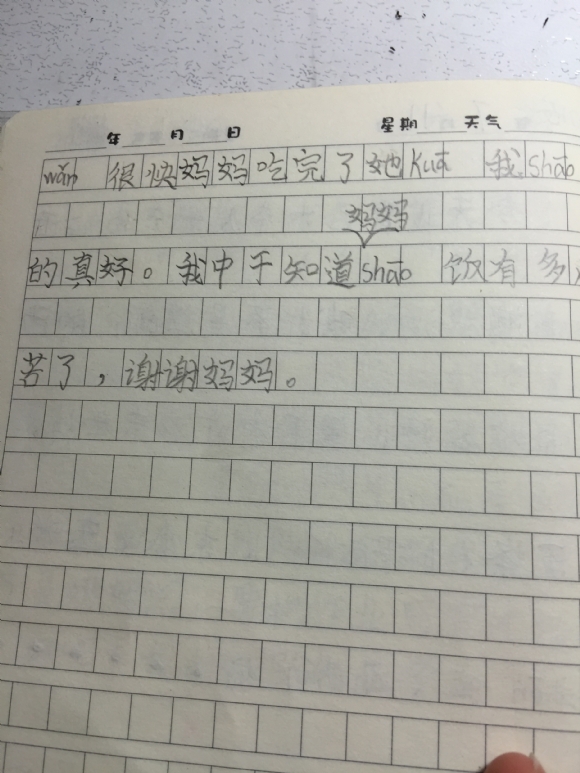 年 月 日 星期 天气
wǎn 很快妈妈吃完了她kuā 我shāo
妈妈
的真好。我中于知道shāo 饭有多
苦了，谢谢妈妈。